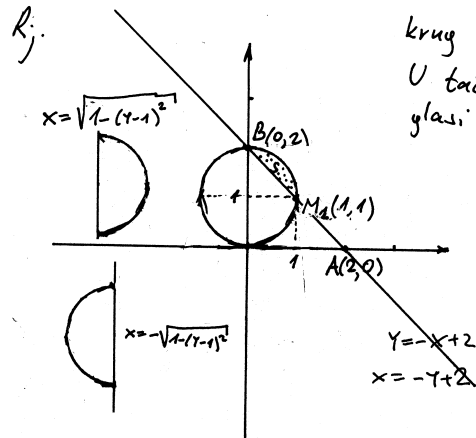 Rj.
krug
U tač
glasi
x=√(1-(y-1)²)
B(0,2)
S
1
M₁(1,1)
1
A(2,0)
x=-√(1-(y-1)²)
y=-x+2
x=-y+2